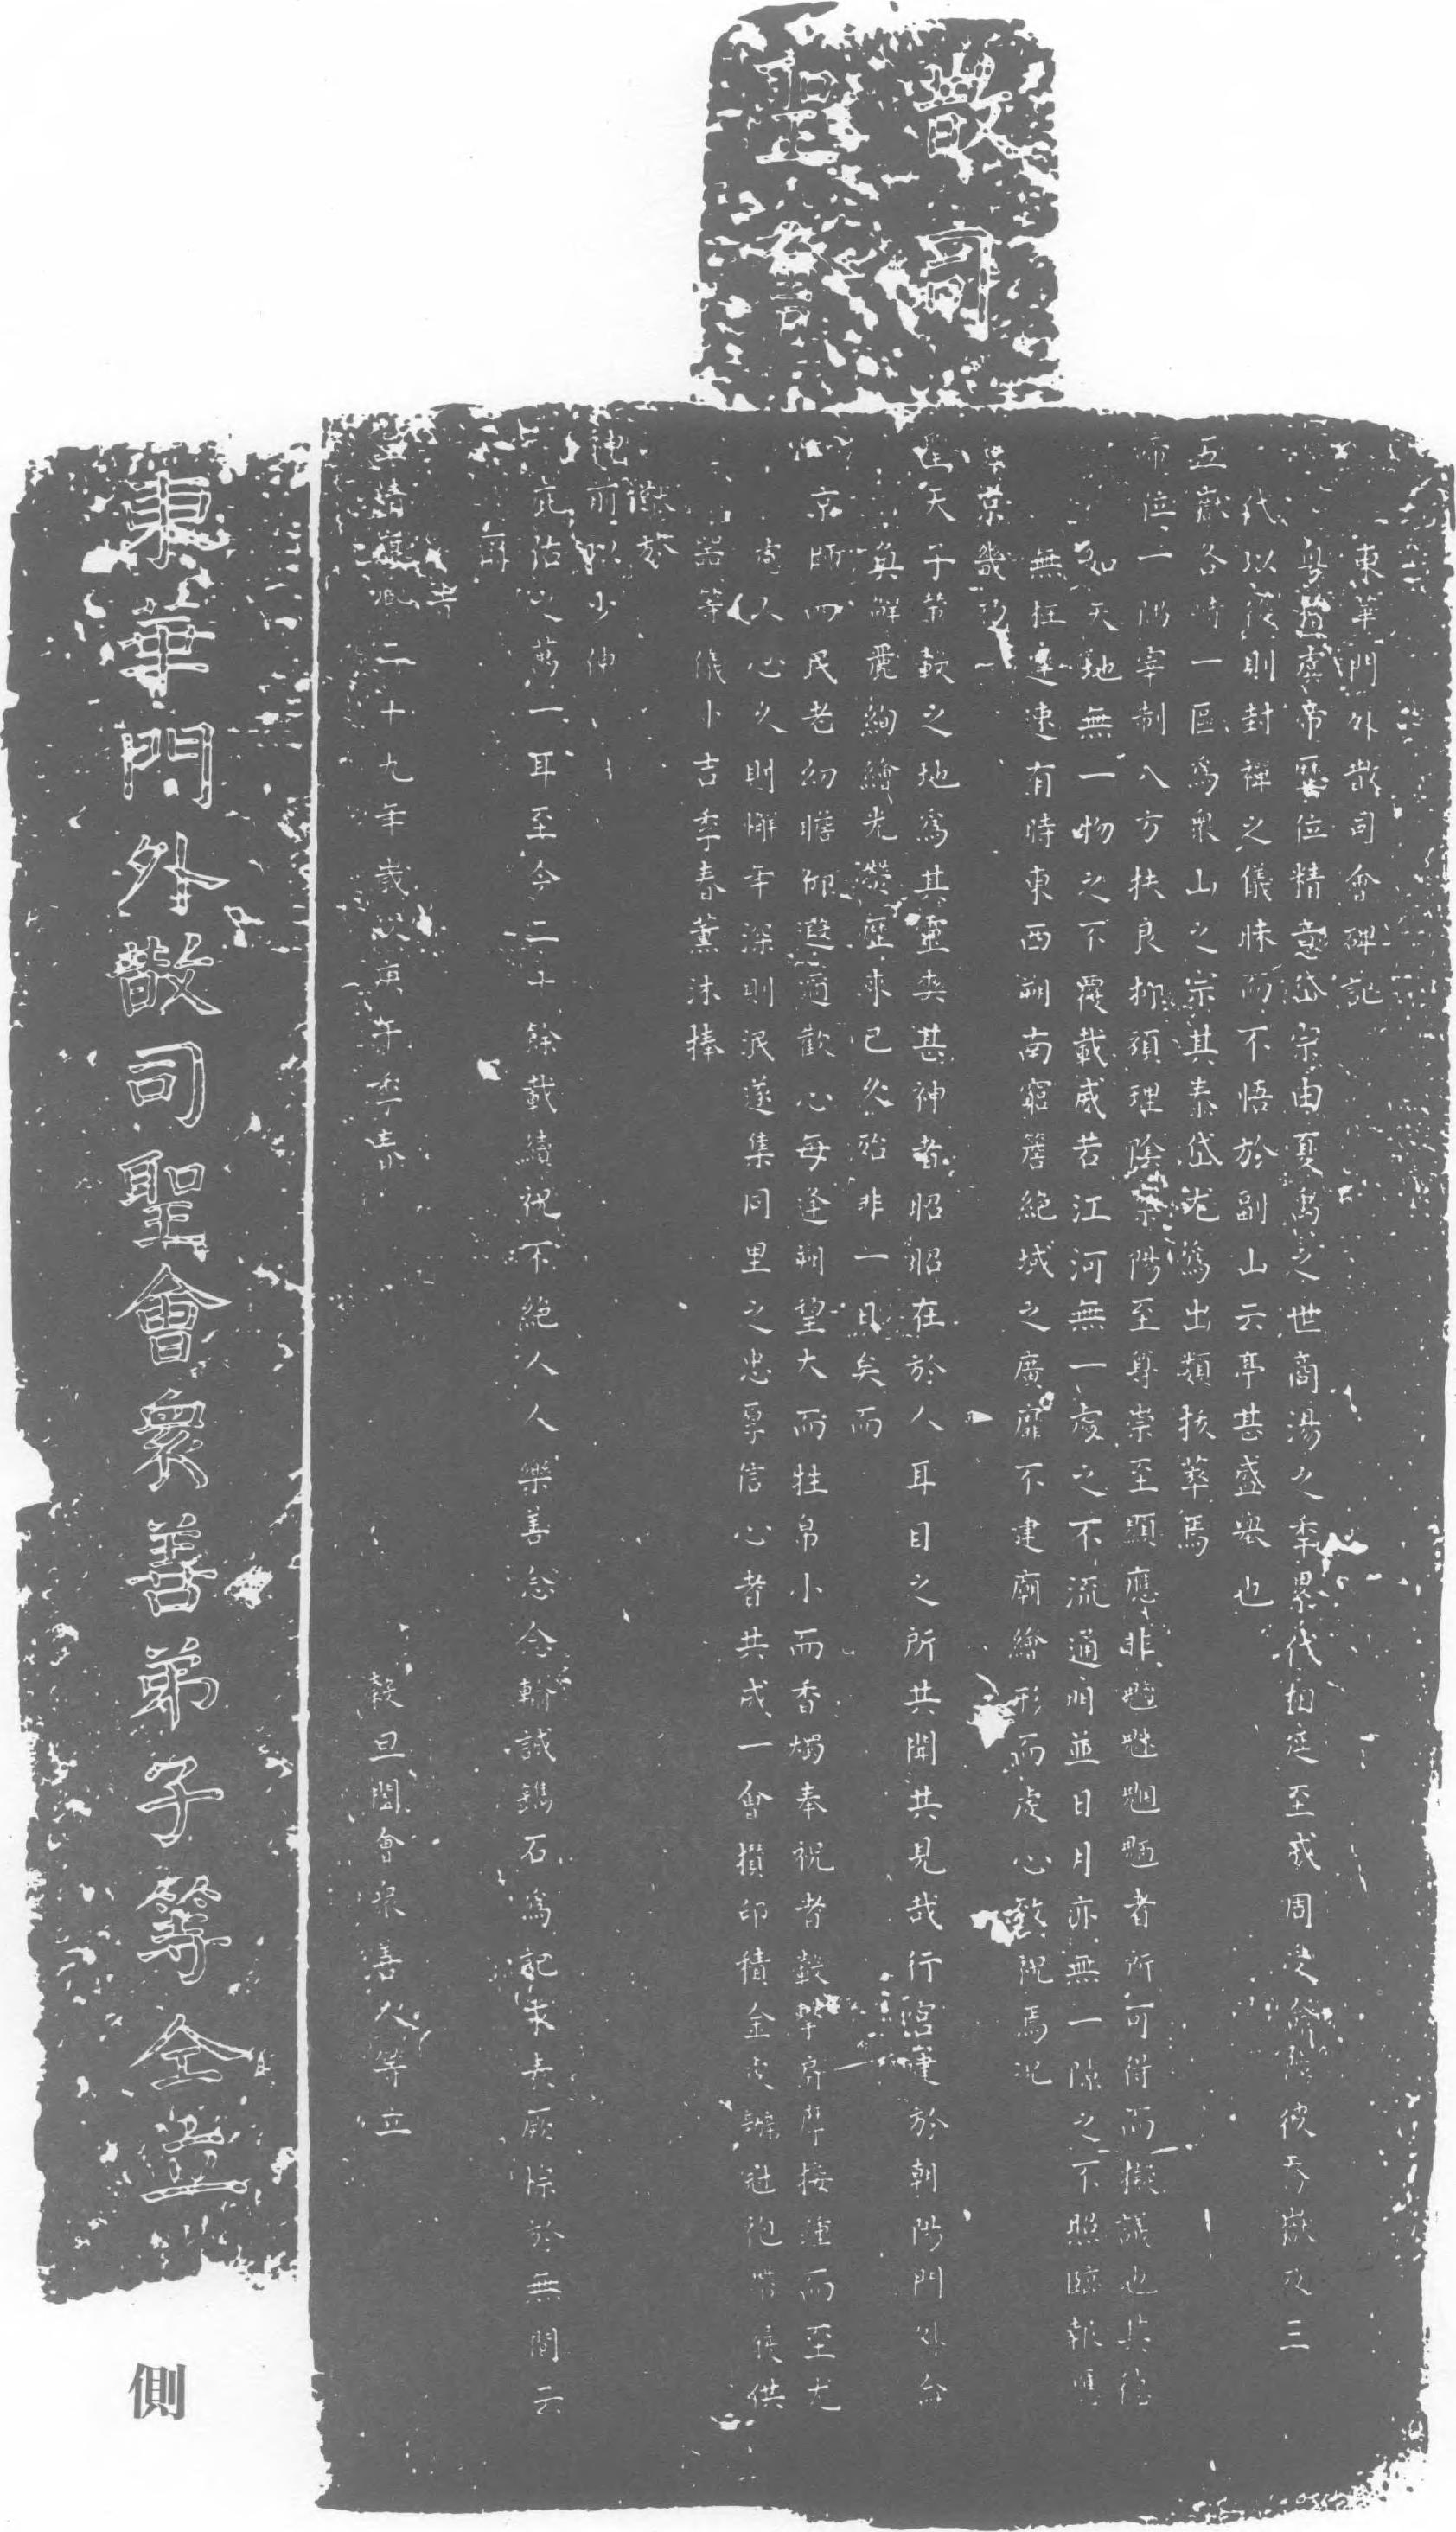 散司
聖會
東華門外散司會碑記
粤㨿虞帝歷位精意岱宗由夏禹之世商湯之季累代相延至我周文餘陰彼喬嶽及三
代以後則封禪之儀昧而不悟於副山云亭甚盛舉也
五嶽各峙一區為衆山之宗其泰岱尤為出類拔萃焉
帝位一陽宰制八方扶良抑頑理陰察陽至尊崇至顯應非魑魅魍魎者所可得而擬議也其德
如天地無一物之不覆載威若江河無一處之不流通明並日月亦無一隙之不照臨報應
無枉遲速有時東西朔南窮簷絕域之廣靡不建廟繪形而虔心致祝焉況
畢京畿乃
聖天子輦轂之地為其靈爽甚神者昭昭在於人耳目之所共聞共見哉行宮建於朝陽門外侖
奐鮮麗絢繪光瑩歷來已久殆非一日矣而
京師四民老幼瞻仰遐邇歡心每逢朔望大而牲帛小而香燭奉祝者轂擊肩摩接踵而至尤
慮人心久則懈年深則泯遂集同里之忠厚信心者共成一會攢印積金虔辦冠袍帶履供
器等儀卜吉季春薰沐捧
獻於
神前以少伸
庇佑之萬一耳至今二十餘載續祝不絕人人樂善念念輸誠鐫石為記永矢厥悰於無間云
爾
旹
康熙二十九年歲次庚午季春
穀旦闔會衆善人等立
東華門外散司聖會衆善弟子等仝立
側